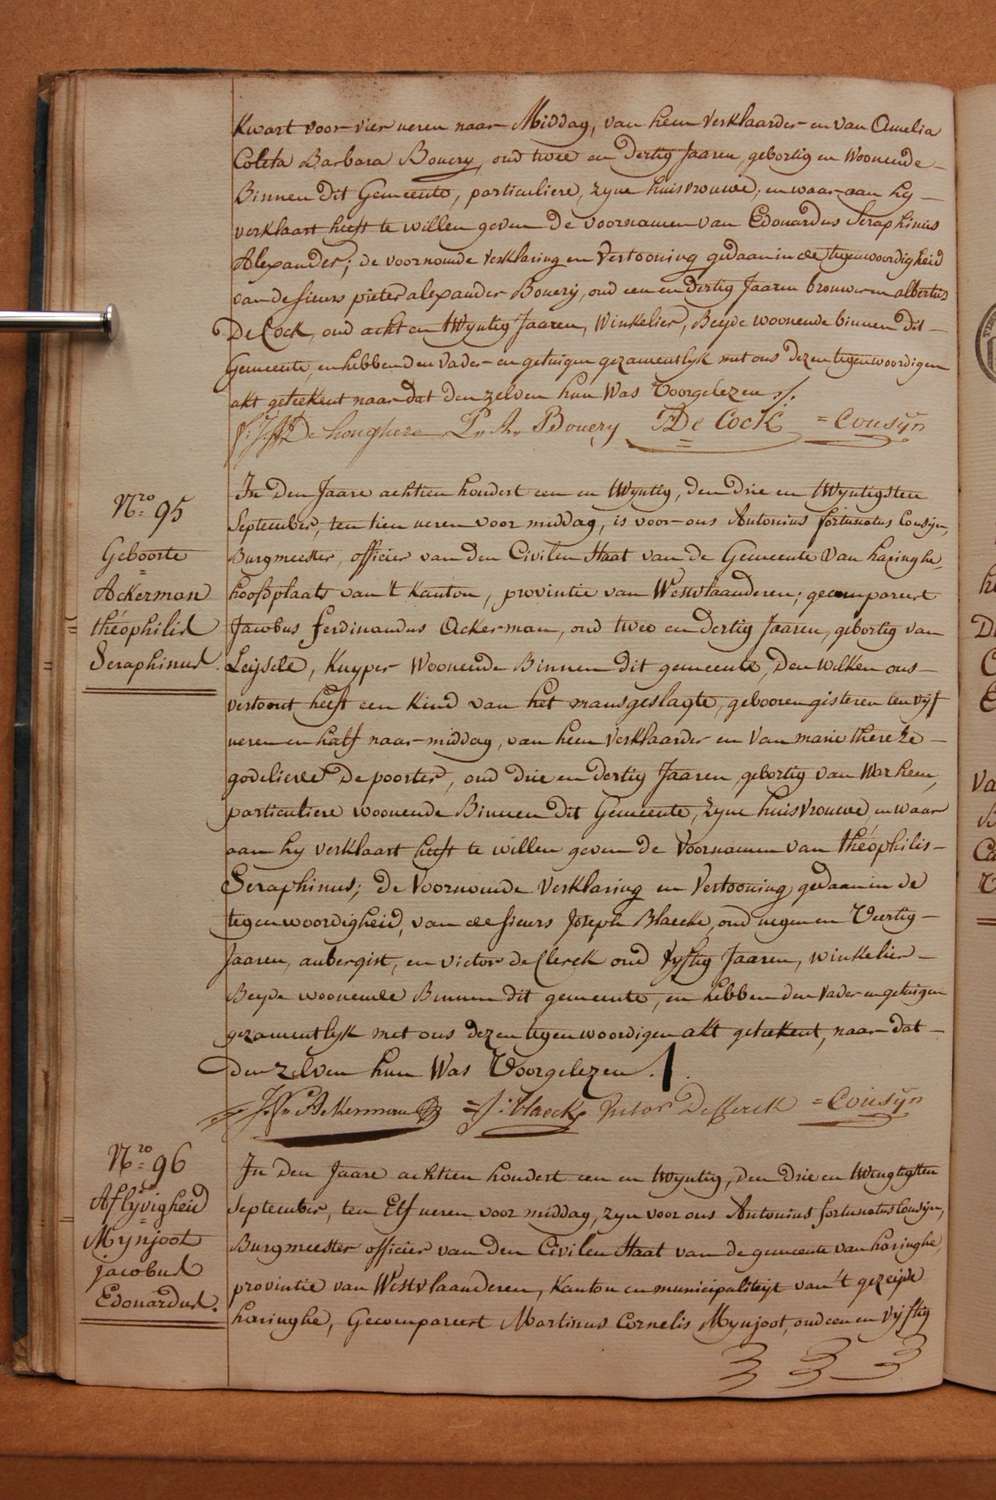 Kwart voor vier ueren naar Middag, van hem verklaarder en van Amelia
Coleta Barbara Bouery, oud twee en dertig Jaaren, gebortig en Woonende
Binnen dit Gemeente, particuliere, zyne huisvrouwe; en waar aan hy
verklaart heeft te willen geven de voornamen van Edouardus Seraphinus
Alexander; de voornomde verklaring en vertooning gedaan in de tegenwoordigheid
van de sieurs pieter alexander Bouery, oud een en dertig Jaaren brouwer en albertus
De Cock, oud acht en twyntig Jaaren, Winkelier, Beyde woonende binnen dit
Gemeente, en hebben den vader en getuigen gezamentlyk met ons dezen tegenwoordigen
akt geteekent naar dat den zelven hun Was Voorgelezen ./.
De houghere P. A. Bouery De Cock = Cousyn
Nro 95
Geboorte
Ackerman
théophilis
Seraphinus.
In Den Jaare achtien hondert een en twyntig, den drie en twyntigsten
September, ten tien ueren voor middag, is voor ons Antonius fortunatus Cousyn,
Burgmeester, officier van den Civilen Staat van de Gemeente van haringhe
hoofsplaats van 't Kanton, provintie van Westvlaanderen; gecompareert
Jacobus ferdinandus Ackerman, oud twee en dertig Jaaren, gebortig van
Leysele, Kuyper Woonende Binnen dit gemeente, Den welken ons
vertoont heeft een Kind van het mansgeslagte, gebooren gisteren ten vyf
ueren en half naar middag, van hem verklaarder en van marie thereze
godelieve De poorter, oud drie en dertig Jaaren, gebortig van Warhem,
particuliere woonende Binnen dit Gemeente, zyne huisvrouwe, en waar
aan hy verklaart heeft te willen geven de Voornamen van théophilis
Seraphinus; De Voornomde verklaring en vertooning gedaan in de
tegenwoordigheid, van de sieurs Joseph Blaecke, oud negen en Veertig
Jaaren, aubergist, en victor de Clerck oud vyftig Jaaren, winkelier
Beyde woonende Binnen dit gemeente, en hebben den vader en getuigen
gezamentlyk met ons dezen tegenwoordigen akt geteekent, naar dat
Den zelven hun Was Voorgelezen ./.
Ackerman = J: Blaecke Victor DeClerck = Cousyn
Nro 96
Aflyvigheid
Mynjoot
jacobus
Edouardus.
In Den Jaare achtien hondert een en twyntig, den drie en twingtigsten
September, ten Elf ueren voor middag, zyn voor ons Antonius fortunatus Cousyn,
Burgmeester officier van den Civilen Staat van de gemeente van haringhe
provintie van Westvlaanderen, Kanton en municipaliteyt van 't gezeyde
haringhe, Gecompareert Martinus Cornelis Mynjoot, oud een en vyftig